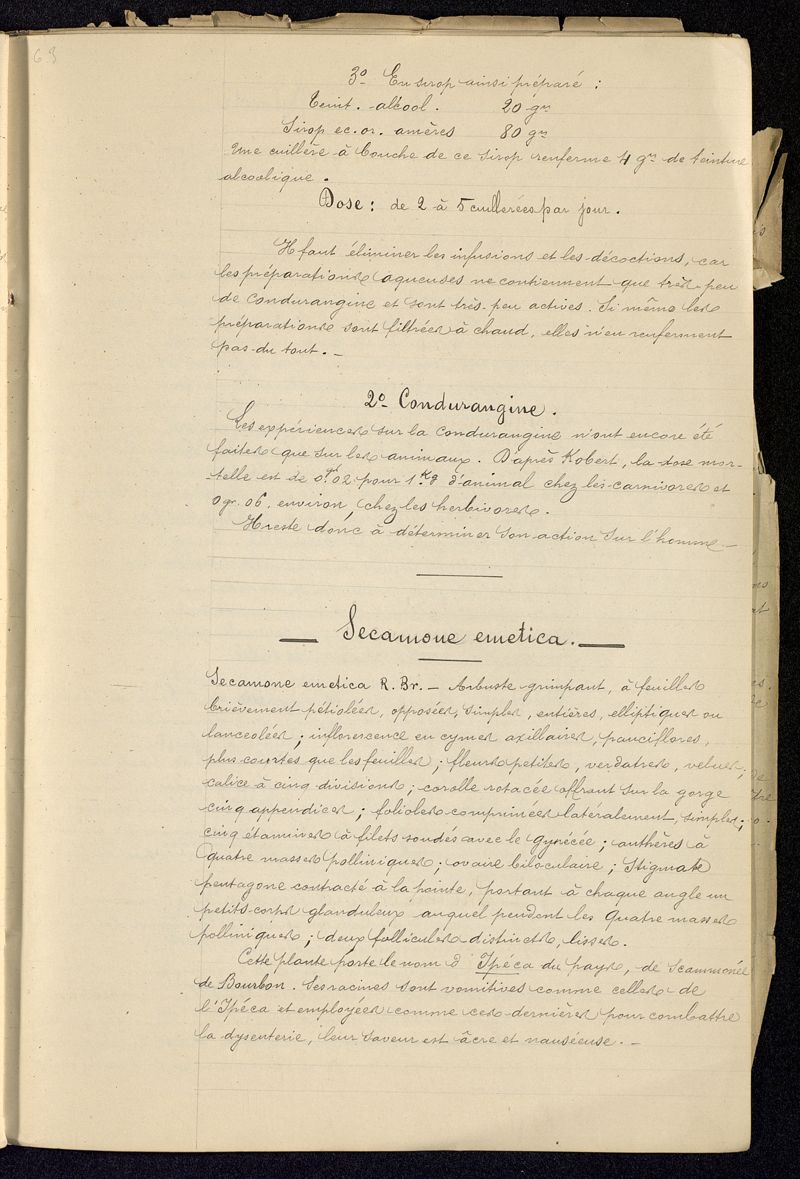 63
3º En sirop ainsi préparé :
Teint. alcool. 20 gr
Sirop ec. or. amères 80 gr
Une cuillère à bouche de ce sirop renferme 4 gr de teinture
alcoolique.
Dose : de 2 à 5 cuillerées par jour.
Il faut éliminer les infusions et les décoctions, car
les préparations aqueuses ne contiennent que très-peu
de condurangine et sont très-peu actives. Si même les
préparations sont filtrées à chaud, elles n'en renferment
pas du tout. _
2º Condurangine.
Les expériences sur la condurangine n'ont encore été
faites que sur les animaux. D'après Kobert, la dose mor-
telle est de 0gr 02 pour 1Kg d'animal chez les carnivores et
0gr. 06 environ, chez les herbivores.
Il reste donc à déterminer son action sur l'homme _
— Secamone emetica. —
Secamone emetica R. Br. — Arbuste grimpant, à feuilles
brièvement pétiolées, opposées, simples, entières, elliptiques ou
lancéolées ; inflorescence en cymes axillaires, pauciflores,
plus courtes que les feuilles ; fleurs petites, verdatres, velues ;
calice à cinq divisions ; corolle rotacée offrant sur la gorge
cinq appendices ; folioles comprimées latéralement, simples ;
cinq étamines à filets soudés avec le gynécée ; anthères à
quatre masses polliniques ; ovaire biloculaire ; Stigmate
pentagone contracté à la pointe, portant à chaque angle un
petits corps glanduleux auquel pendent les quatre masses
polliniques ; deux follicules distincts, lisses.
Cette plante porte le nom d' Ipéca du pays, de Scammonée
de Bourbon. Ses racines sont vomitives comme celles de
l'Ipéca et employées comme ces dernières pour combattre
la dysenterie, leur saveur est âcre et nauséeuse. _